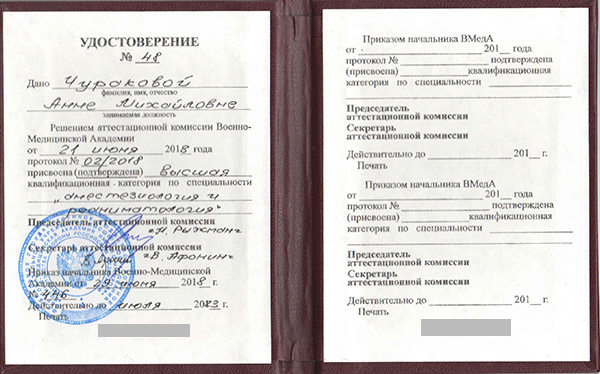 УДОСТОВЕРЕНИЕ
№ 48
Дано Чураковой
фамилия, имя, отчество
Анне Михайловне
занимаемая должность
Решением аттестационной комиссии Военно-
Медицинской Академии
от 21 июня 2018 года
протокол № 02/2018
присвоена (подтверждена) высшая
квалификационная категория по специальности
"анестезиология и
реаниматология"
Председатель аттестационной комиссии
Н. Рыжман
Секретарь аттестационной комиссии
В. Афонин
Приказ начальника Военно-Медицинской
Академии от 29 июня 2018 г.
№ 446
Действительно до июля 2023 г.
Печать
Приказом начальника ВМедА
от 201 года
протокол № подтверждена
(присвоена) квалификационная
категория по специальности
Председатель
аттестационной комиссии
Секретарь
аттестационной комиссии
Действительно до 201 г.
Печать
Приказом начальника ВМедА
от 201 года
протокол № подтверждена
(присвоена) квалификационная
категория по специальности
Председатель
аттестационной комиссии
Секретарь
аттестационной комиссии
Действительно до 201 г.
Печать